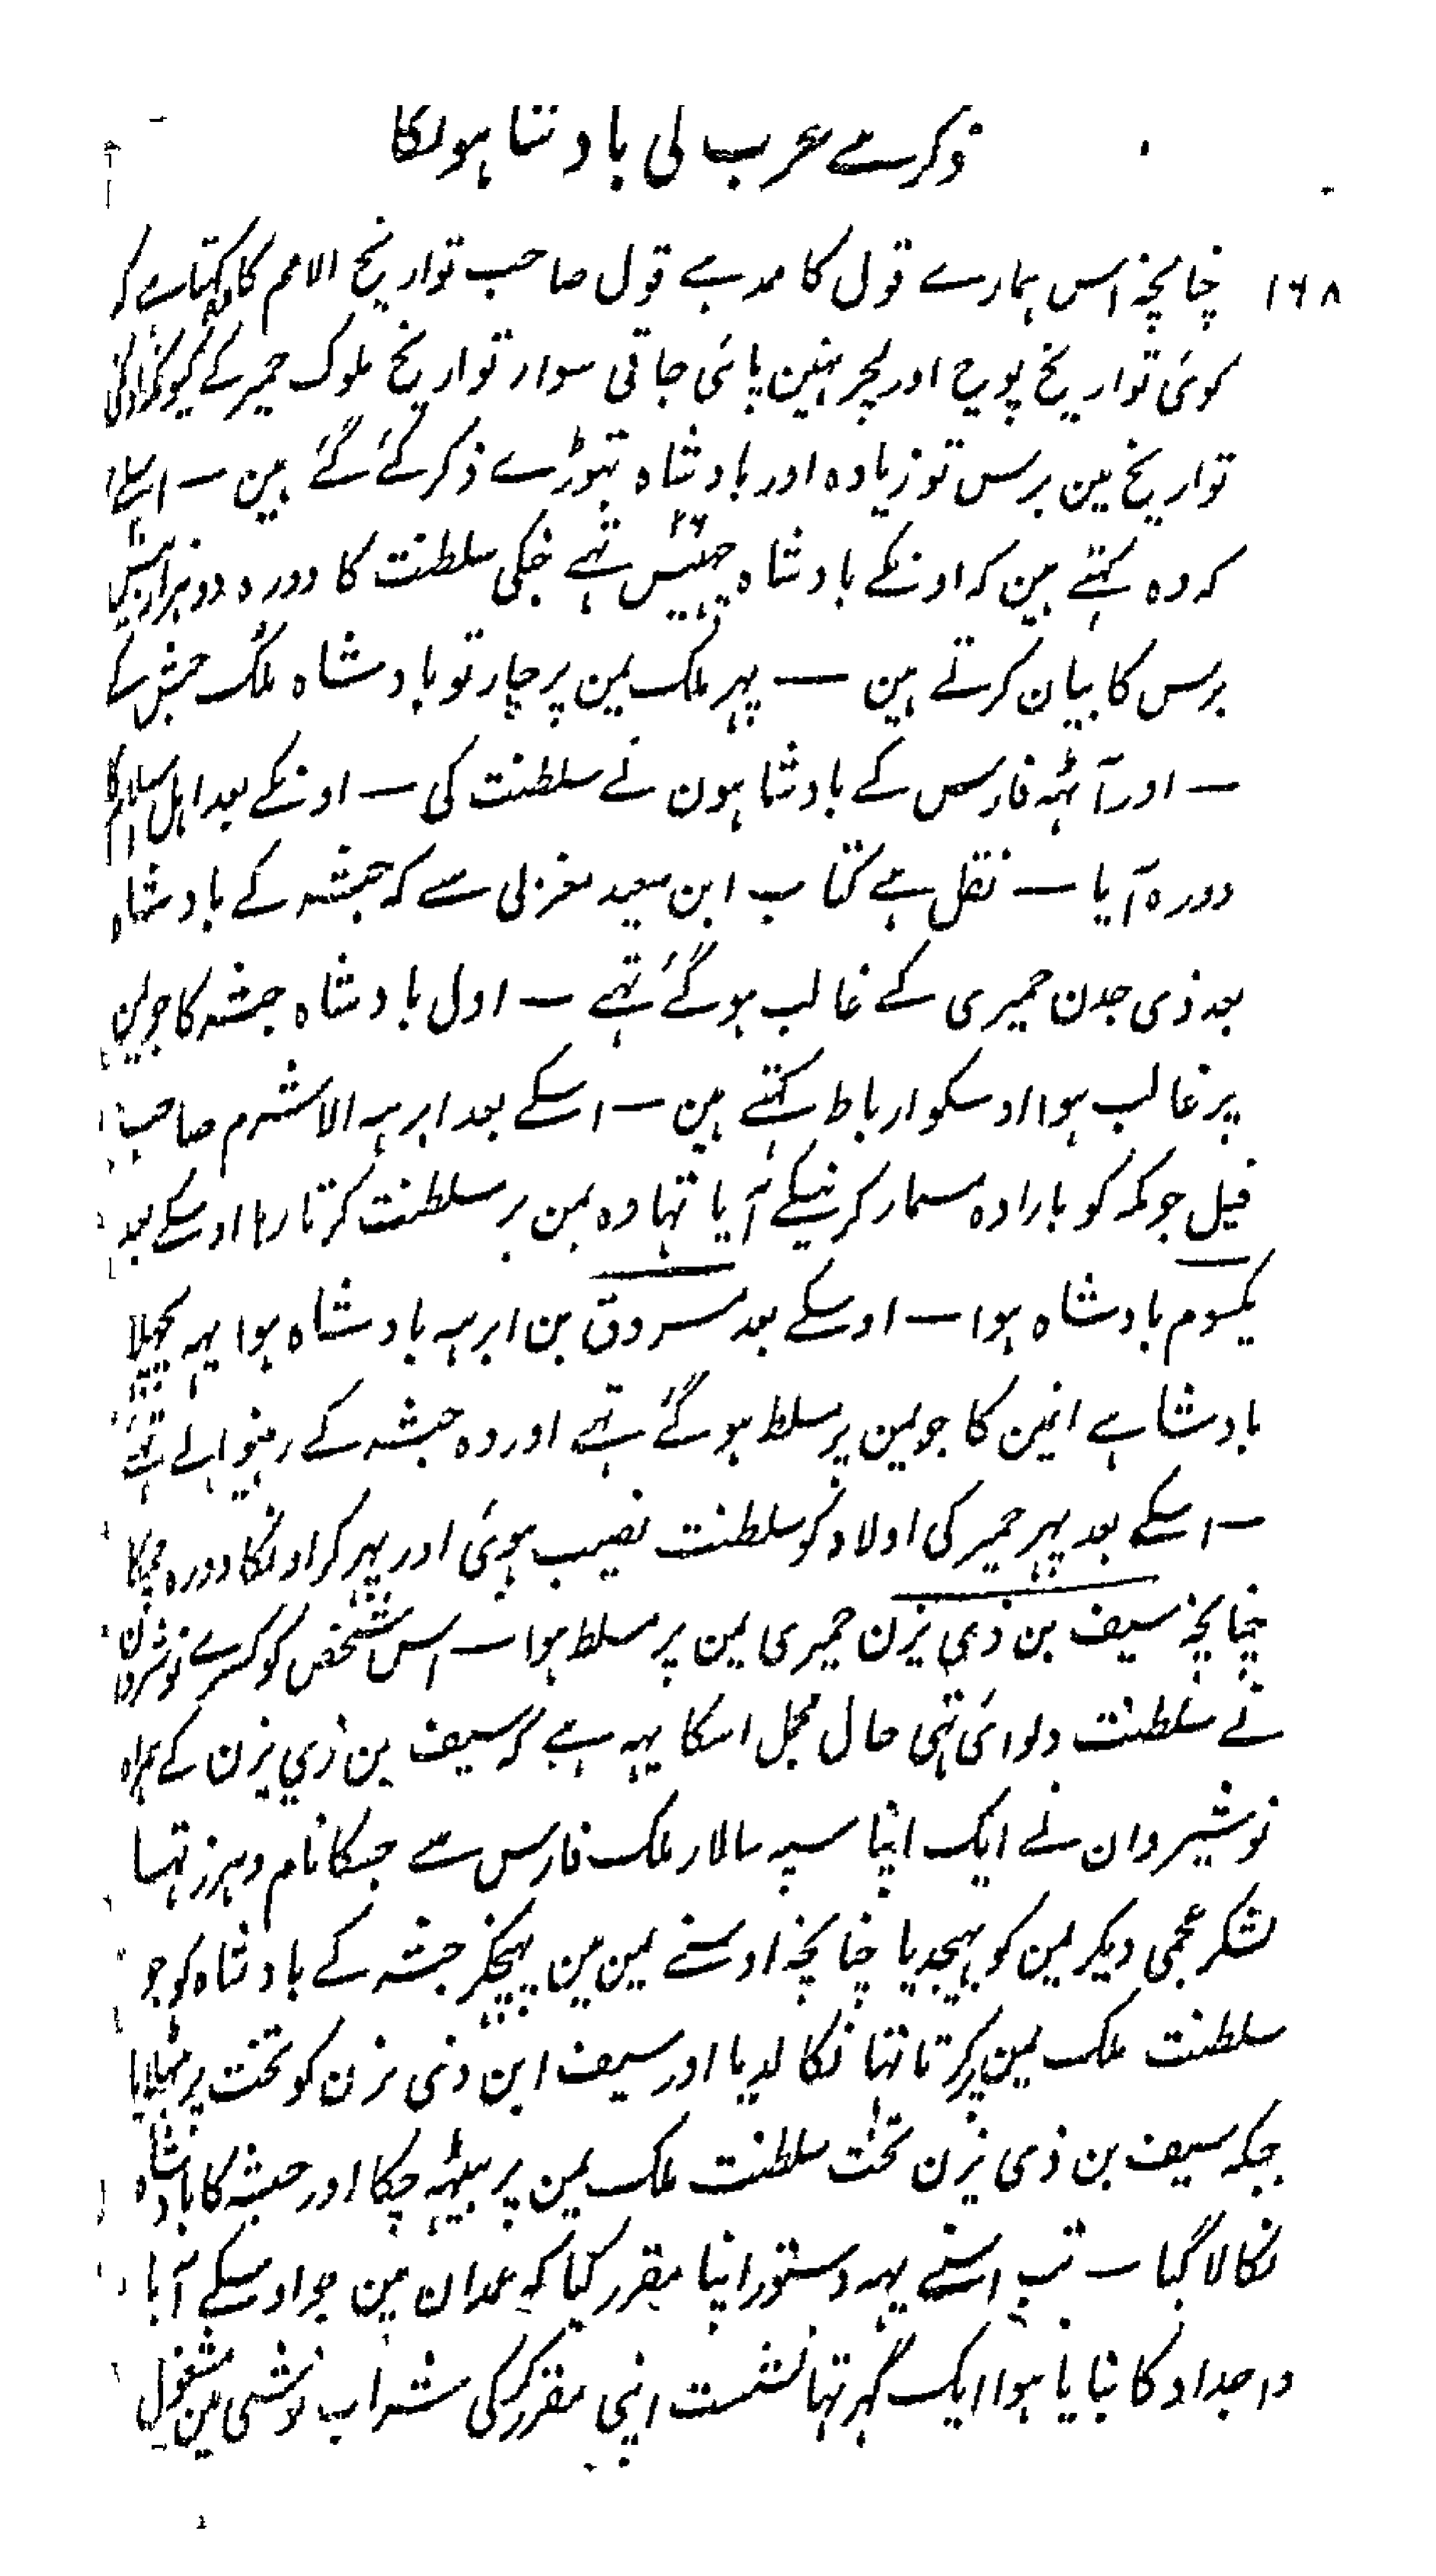 ذکر ہے عرب کی بادشاہونکا
۱۶۸
چنانچہ اس ہمارے قول کا مد ہے قول صاحب تواریخ الامم کا وہ کہتا ہے کہ
کوئی تواریخ پوچ اور لچر نہین پائی جاتی سوار تواریخ ملوک حمیر کے کیونکہ اونکی
تواریخ مین برس تو زیادہ اور بادشاہ تہوڑے ذکر کئے گئے ہین ـ اسلئے
کہ وہ کہتے ہین کہ اونکے بادشاہ چہبیس ۲۶ تہے جنکی سلطنت کا دورہ دو ہزار بیس
برس کا بیان کرتے ہین ـ پہر ملک یمن پر چار تو بادشاہ ملک حبش کے
ـ اور آٹہہ فارس کے بادشاہون نے سلطنت کی ـ اونکے بعد اہل اسلام کا
دورہ آیا ـ نقل ہے کتاب ابن سعید مغربی سے کہ حبشہ کے بادشاہ
بعد ذی جدن حمیری کے غالب ہوگئے تہے ـ اول بادشاہ حبشہ کا جو یمن
پر غالب ہوا اوسکو ارباط کہتے ہین ـ اسکے بعد ابرہہ الاشرم صاحب
فیل جو مکہ کو بارادہ مسمار کرنیکے آیا تہا وہ یمن پر سلطنت کرتا رہا اوسکے بعد
یکسوم بادشاہ ہوا ـ اوسکے بعد مسروق بن ابرہہ بادشاہ ہوا یہہ پچہلا
بادشاہ ہے انین کا جو یمن پر مسلط ہوگئے تہے اور وہ حبشہ کے رہنیوالے تہے
ـ اسکے بعد پہر حمیر کی اولاد کو سلطنت نصیب ہوئی اور پہر کر اونکا دورہ چمکا
چنانچہ سیف بن ذی یزن حمیری یمن پر مسلط ہوا ـ اس شخص کو کسرے نوشیروان
نے سلطنت دلوائی تہی حال مجمل اسکا یہہ ہے کہ سیف بن ذی یزن کے ہمراہ
نوشیروان نے ایک اپنا سپہ سالار ملک فارس سے جسکا نام وہرز تہا
لشکر عجمی دیکر یمن کو بہیجدیا چنانچہ اوسنے یمن مین پہنچکر حبشہ کے بادشاہ کو جو
سلطنت ملک یمن پر کرتا تہا نکالدیا اور سیف ابن ذی یزن کو تخت پر بٹہلایا
جبکہ سیف بن ذی یزن تخت سلطنت ملک یمن پر بیٹہہ چکا اور حبشہ کا بادشاہ
نکالا گیا ـ تب اسنے یہہ دستور اپنا مقرر کیا کہ غمدان مین جو اوسکے آبا
و اجداد کا بنایا ہوا ایک گہر تہا نشست اپنی مقرر کرکی شراب نوشی مین مشغول